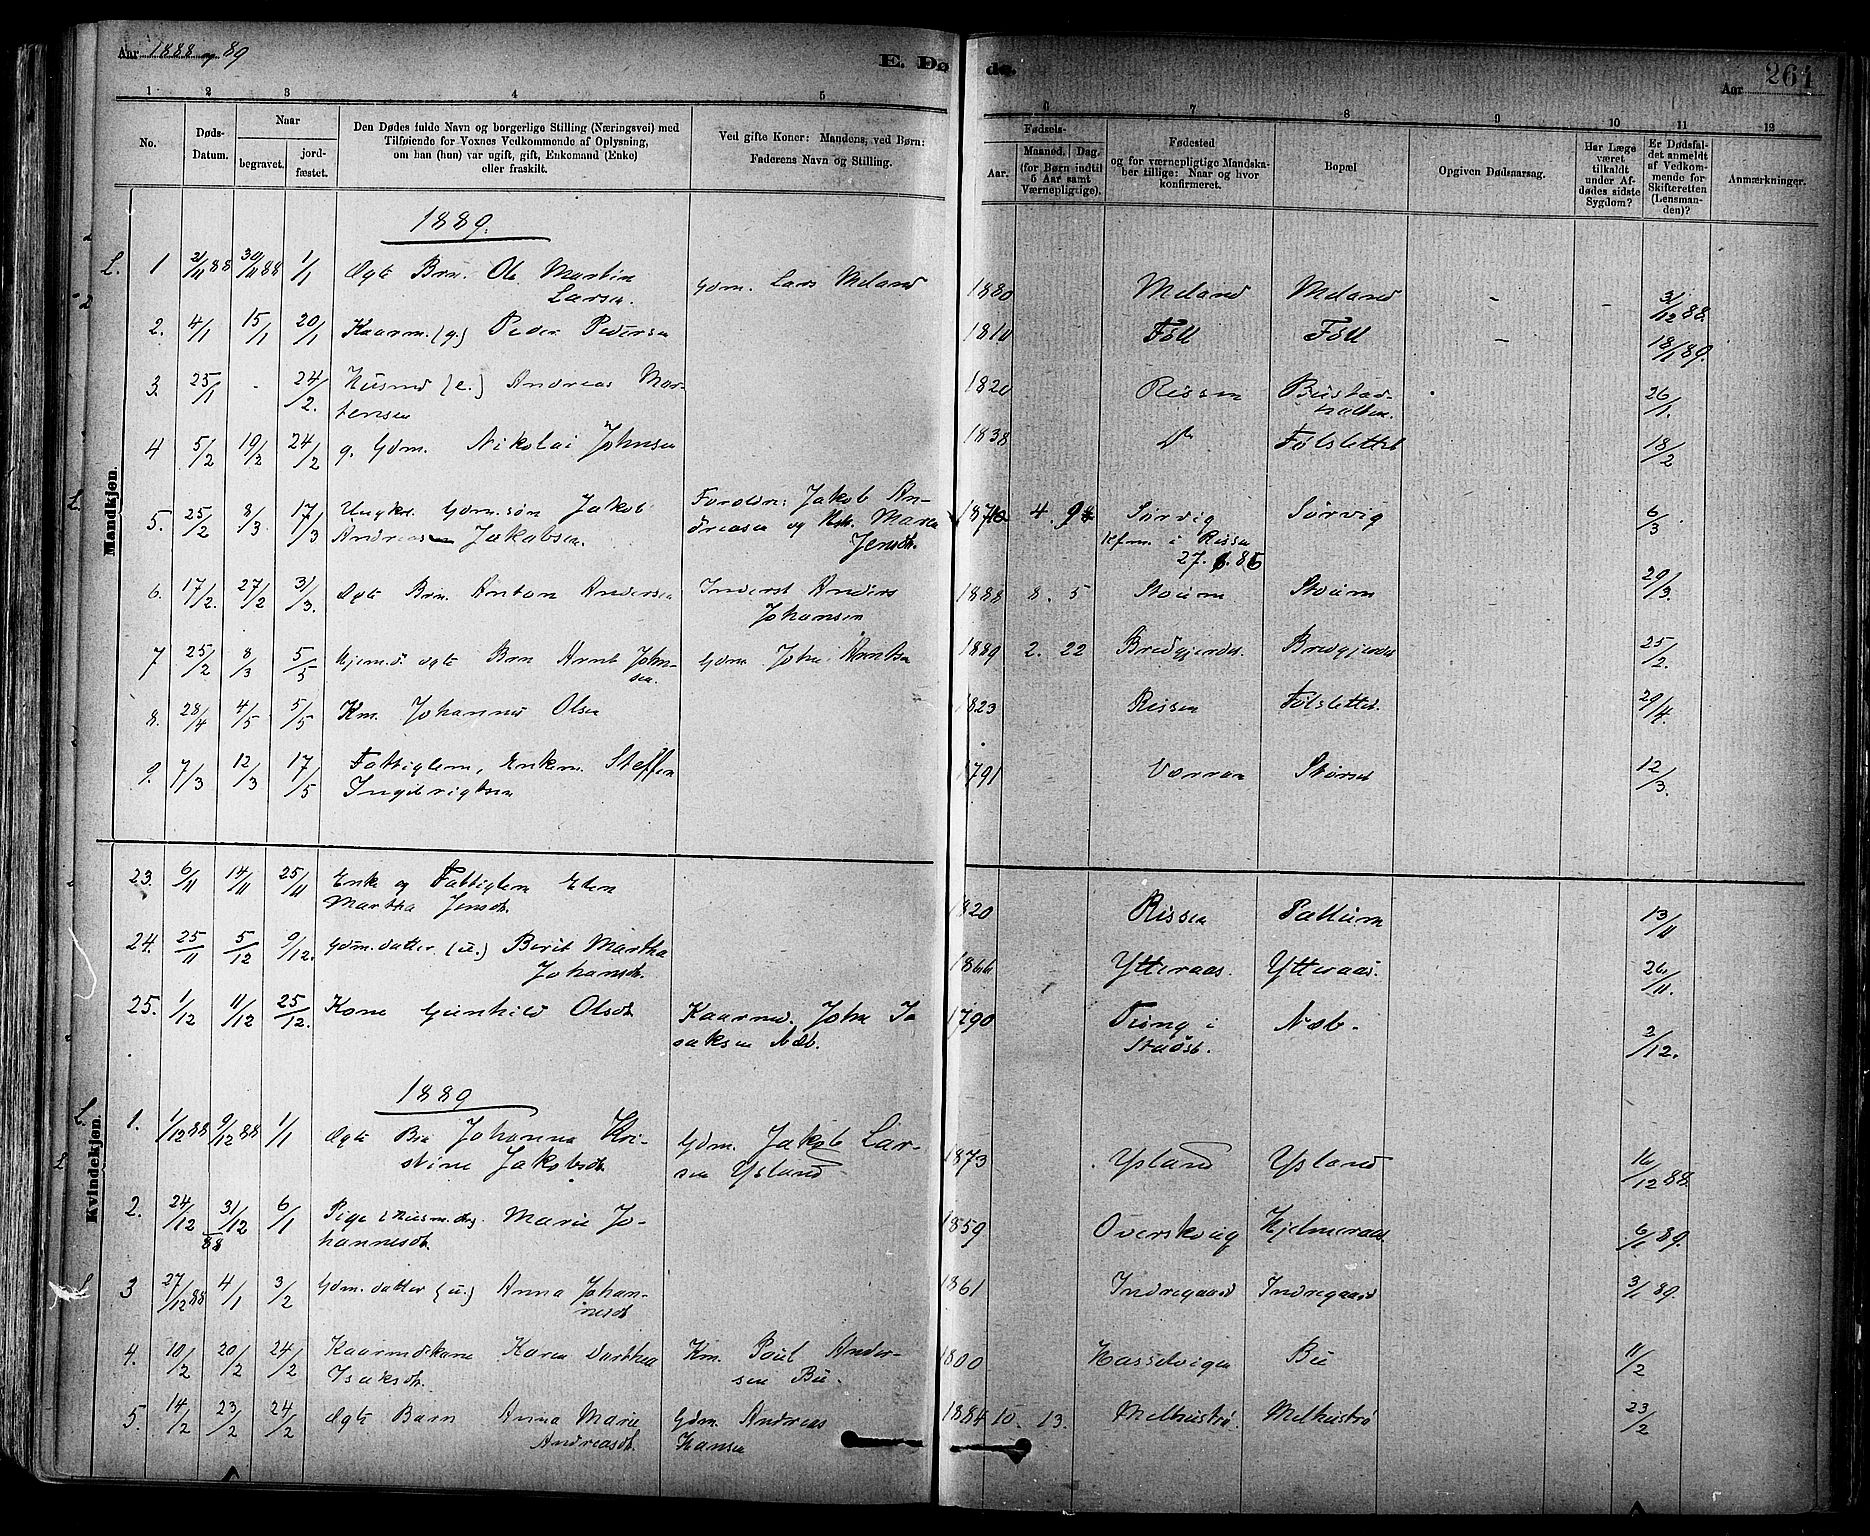 Aar 1888 og 89
E. Dø
de.
Aar
264
1 2 3 4 5 6 7 8 9 10 11 12
No.
Døds-
Datum.
Naar
begravet.
jord-
fæstet.
Den Dødes fulde Navn og borgerlige Stilling (Næringsvei) med
Tilføiende for Voxnes Vedkommende af Oplysning,
om han (hun) var ugift, gift, Enkemand (Enke)
eller fraskilt.
Ved gifte Koner: Mandens, ved Børn:
Faderens Navn og Stilling.
Fødsels-
Aar.
Maaned. Dag.
(for Børn indtil
5 Aar samt
Værnepligtige).
Fødested
og for værnepligtige Mandska-
ber tillige: Naar og hvor
konfirmeret.
Bopæl
Opgiven Dødsaarsag.
Har Læge
været
tilkaldt
under Af-
dødes sidste
Sygdom?
Er Dødsfal-
det anmeldt
af Vedkom-
mende for
Skifteretten
(Lensman-
den)?
Anmærkninger.
Mandkjøn.
1889.
L. 1 21/11 88 30/11 88 1/1 Ægte Brn. Ole Martin
Larsen. Gdm. Lars Meland 1880 Meland Meland - - 3/12 88.
2. 4/1 15/1 20/1 Kaarm. (g.) Peder Pedersen 1810 Föll Föll - 18/1 89.
3. 25/1 - 24/2. Husmd (e.) Andreas Mor-
tensen 1820 Rissen Bustad-
hallen. 26/1.
4 5/2 19/2 24/2 g. Gdm. Nikolai Johnsen 1838 Do Fölslettet 18/2
L. 5. 25/2 8/3 17/3 Ungkr. Gdm.søn Jakob
Andreas Jakobsen. Foreldre: Jakob An-
dreasen og Kstr. Maren
Jensdt. 1870 4. 9 Sörvig
Kfm. i Rissen
27. 6. 86 Sörvig 6/3
6. 17/2. 27/2 31/3. Ægte Brn. Anton Andersen Inderst Anders
Johansen 1888 8. 5 Stoum Stoum 20/3.
7 25/2 8/3 5/5 Hjem.d. ægte Brn Arnt John-
sen. Gdm John Arntsen 1889 2. 22 Bredgjerdet. Bredgjerdet 25/2.
8. 28/4 4/5 5/5 Km. Johannes Olsen 1823 Rissen Fölslettet. 29/4.
9. 7/3 12/3 17/5 Fattiglem, Enkem. Steffen
Ingebrigtsen 1791 Værran Störset 12/3.
Kvindekjøn.
23. 6/11 14/11 25/11 Enke og Fattiglem Elen
Martha Jensdt. 1820 Rissen Pallum 13/11
24. 25/11 5/12 9/12. Gdm.datter (u.) Berit Martha
Johansdt. 1866 Ytteraas. Ytteraas. 26/11.
25. 1/12 11/12 25/12. Kone Gunhild Olsdt Kaarmd. John I-
saksen Næb. 1790 Tung i
Stadsb. Næb. 2/12.
1889
L. 1. 1/12 88 9/12 88 1/1 Ægte Brn Johanna Kri-
stine Jakobsdt. Gdm. Jakob Lar-
sen Ysland 1873 Ysland Ysland 16/12 88.
2. 24/12 31/12 88 6/1 Pige (Husm.d.) Marie Jo-
hannesdt. 1859 Overskoug Hjelmeraas. 6/1 89.
L 3 27/12 88 4/1 3/2 Gdm.datter (u.) Anna Johan-
nesdt 1861 Indregaard Indregaard 3/1 89.
4. 10/2 20/2 24/2 Kaarmdskone Karen Dorthea
Isaksdt. Km. Paul Ander-
sen Bu. 1800 Hasselvigen Bu 11/2
5. 14/2 23/2 24/2 Ægte Barn Anna Marie
Andreasdt. Gdm. Andreas
Hansen 1884 10. 13. Melhuströ. Melhuströ 23/2